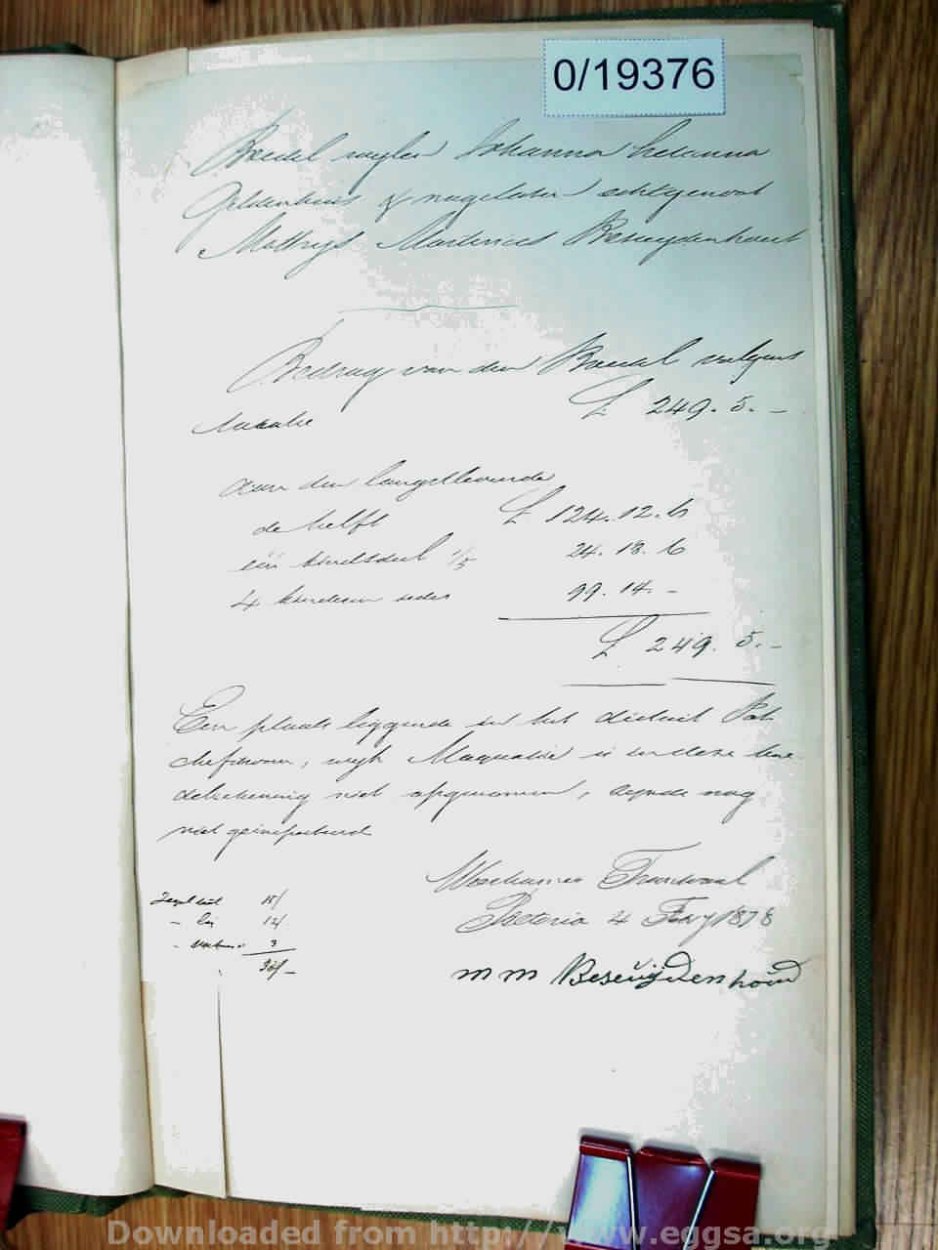 0/19376
Boedel wijlen Johanna Helanna
Geldenhuis & nagelaten echtgenoot
Mathijs Martinus Besuydenhout
Bedrag van den Boedel volgens
taxatie £ 249. 5. -
aan den langstlevende
de helft £ 124. 12. 6
een kindsdeel 1/5 24. 18. 6
4 kinderen ieder 99. 14. -
£ 249. 5. -
Een plaats liggende in het district Pot
chefstroom, wijk is in deze boe
delrekening niet opgenomen, zynde nog
niet geinspecteerd
Weeskamer Transvaal
Pretoria 4 Feby 1878
m m Beseuijdenhoud
15/
12/
3
30/-
Downloaded from http://www.eggsa.org